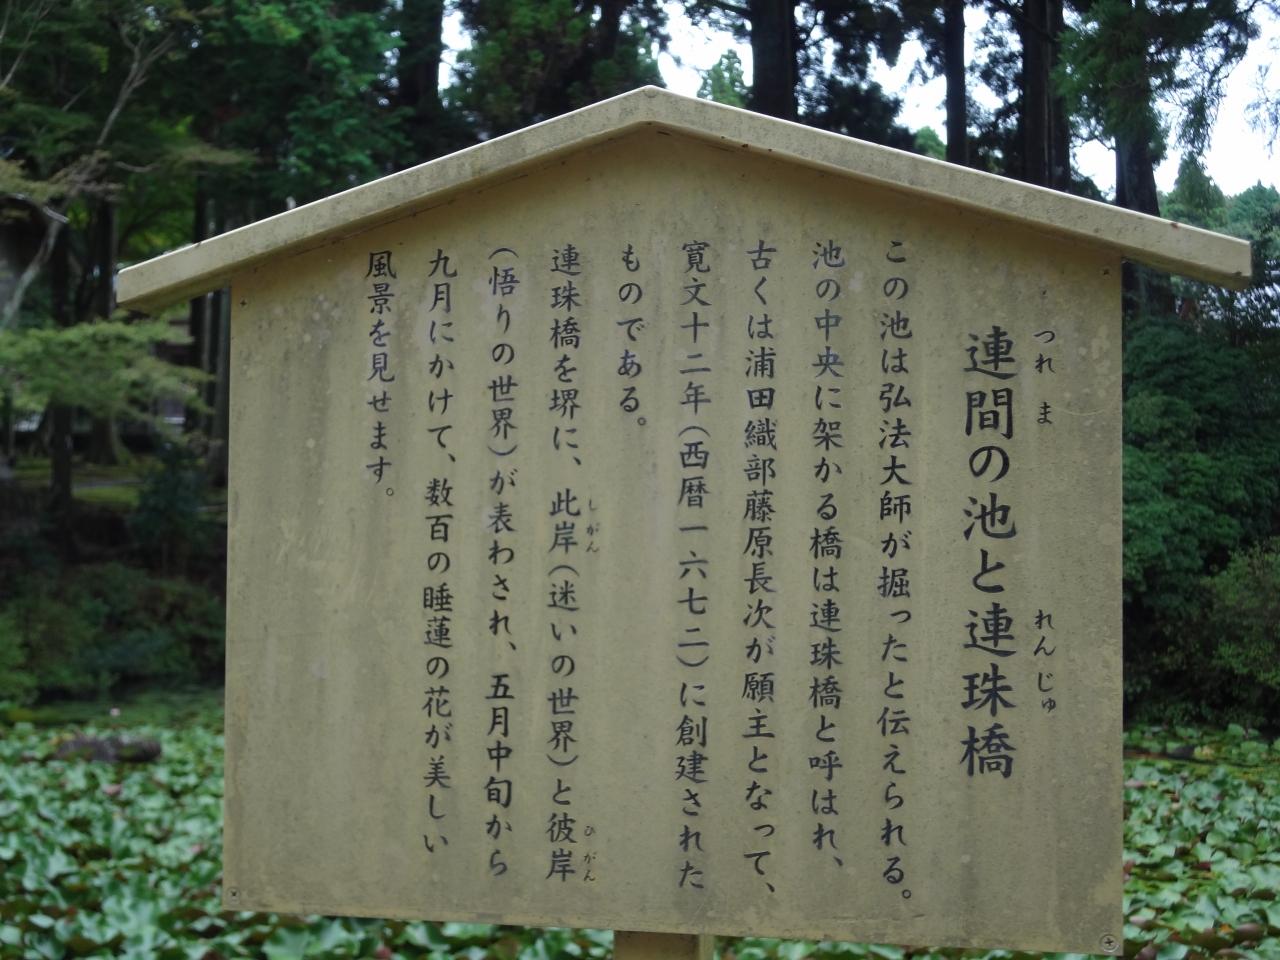 連間の池と連珠橋
つれま
れんじゅ
この池は弘法大師が掘ったと伝えられる。
池の中央に架かる橋は連珠橋と呼はれ、
古くは浦田織部藤原長次が願主となって、
寛文十二年(西暦一六七二)に創建された
ものである。
連珠橋を堺に、此岸(迷いの世界)と彼岸
しがん
ひがん
(悟りの世界)が表わされ、五月中旬から
九月にかけて、数百の睡蓮の花が美しい
風景を見せます。